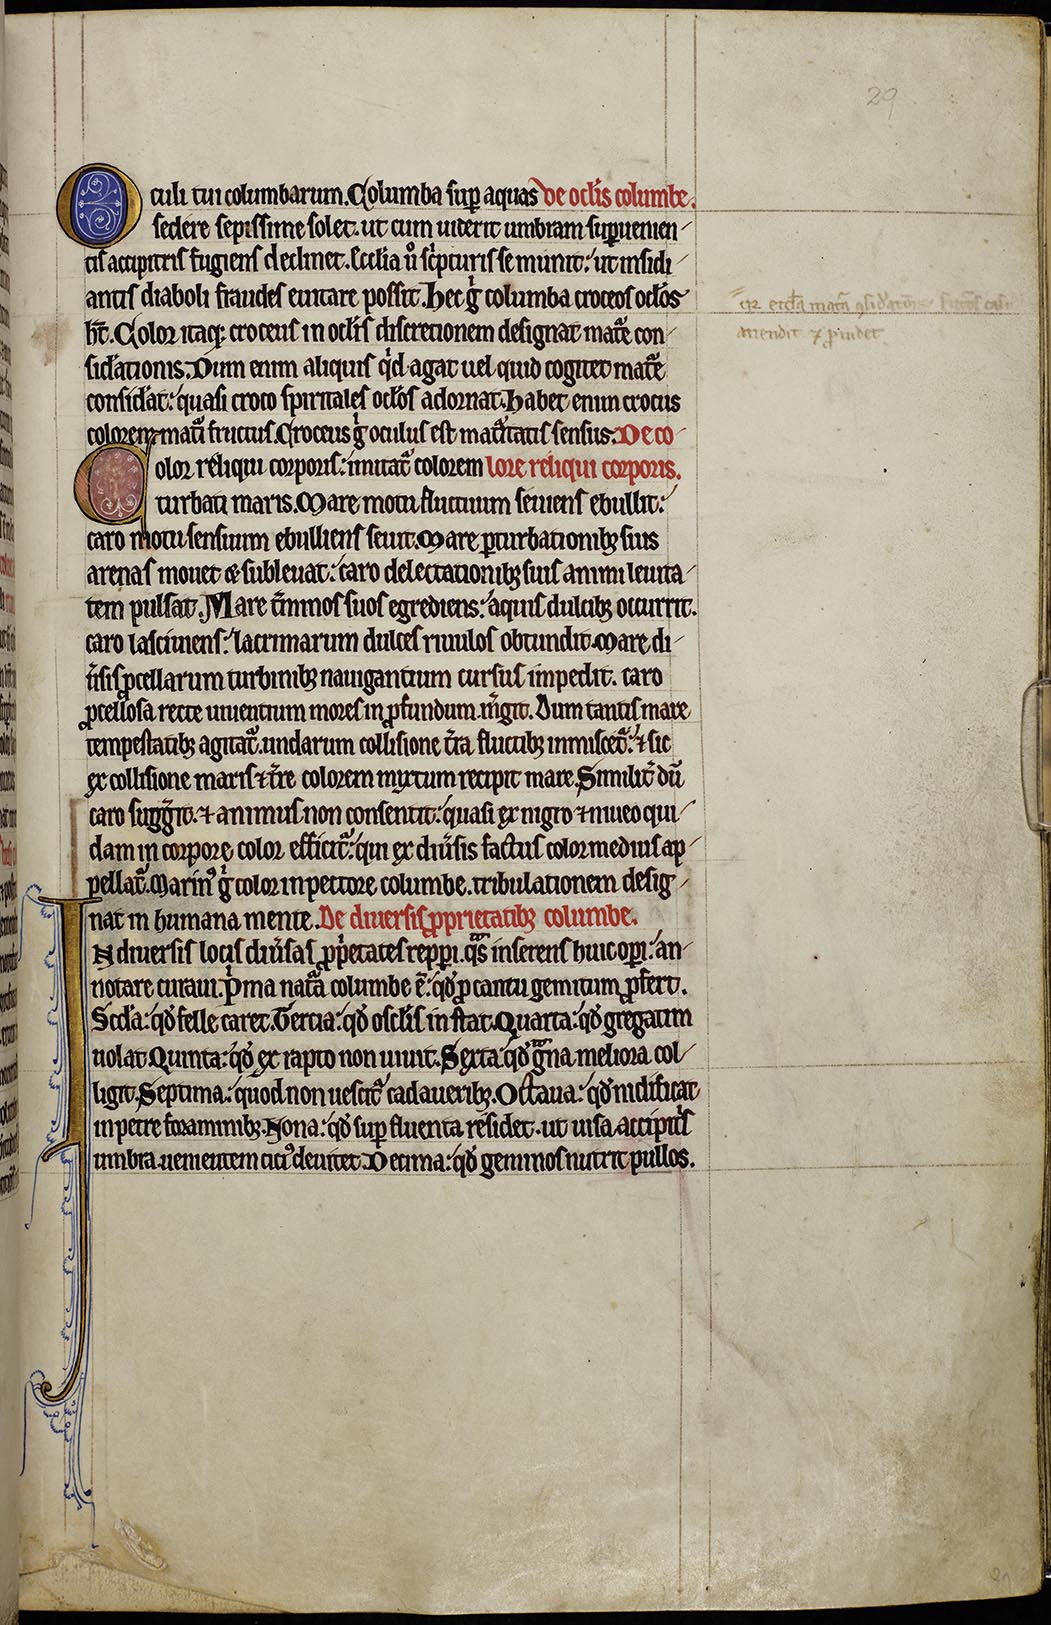 29
Oculi tui columbarum. Columba sup̲ aquas de oclis columbe.
sedere sepissime solet. ut cum uiderit umbram sup̲uenien-
tis accipitris fugiens declinet. Ecclia u̾o sc̾pturis se munit: ut insidi-
antis diaboli fraudes euitare possit. Hec g̾ columba croceos oclos
ht̄. Color itaq; croceus in oclis discretionem designat mat̾e con-
sid̾ationis. Dum enim aliquis q̾d agat uel quid cogitet mat̾e
consid̾at: quasi croco spiritales oclos adornat. Habet enim crocus
colorem mat̾i fructus. Croceus g̾ oculus est mat̾itatis sensus. De co-
Color reliqui corporis: imitat̾ colorem lore reliqui corporis.
turbati maris. Mare motu fluctuum seuiens ebullit:
caro motu sensuum ebulliens seuit. Mare p̲turbationibꝫ suis
arenas mouet & subleuat: caro delectationibꝫ suis animi leuita-
tem pulsat. Mare t̾minos suos egrediens: aquis dulcibꝫ occurrit.
caro lasciuiens: lacrimarum dulces riuulos obtundit. Mare di-
u̾sis ꝓcellarum turbinibꝫ nauigantium cursus impedit. caro
ꝓcellosa recte uiuentium mores in ꝓfundum m̾git. Dum tantis mare
tempestatibꝫ agitat̾. undarum collisione t̾ra fluctibꝫ inmiscet̾: ⁊ sic
ex collisione maris ⁊ t̾re colorem mixtum recipit mare. Similit̾ dū
caro sugg̾it. ⁊ animus non consentit: quasi ex nigro ⁊ niueo qui-
dam in corpore color efficit̾: qui ex diu̾sis factus color medius ap-
pellat̾. Marin9 g̾ color in pectore columbe. tribulationem desig-
nat in humana mente. De diuersis ꝓprietatibꝫ columbe.
In diuersis locis diu̾sas ꝓp̾etates rep̲p̲i. q̾s inserens huic op̲i: an-
notare curaui. P̾ma nat̾a columbe ē: qd̾ ꝓ cantu gemitum ꝓfert.
Scd̾a: qd̾ felle caret. Tercia: qd̾ osclis instat. Quarta: qd̾ gregatim
uolat. Quinta: qd̾ ex rapto non uiuit. Sexta: qd̾ g̾na meliora col-
ligit. Septima: quod non uescit̾ cadaueribꝫ. Octaua: qd̾ nidificat
in petre foraminibꝫ. Nona: qd̾ sup̲ fluenta residet. ut uisa accipit̾s
umbra uenientem citi9 deuitet. Decima: qd̾ geminos nutrit pullos.